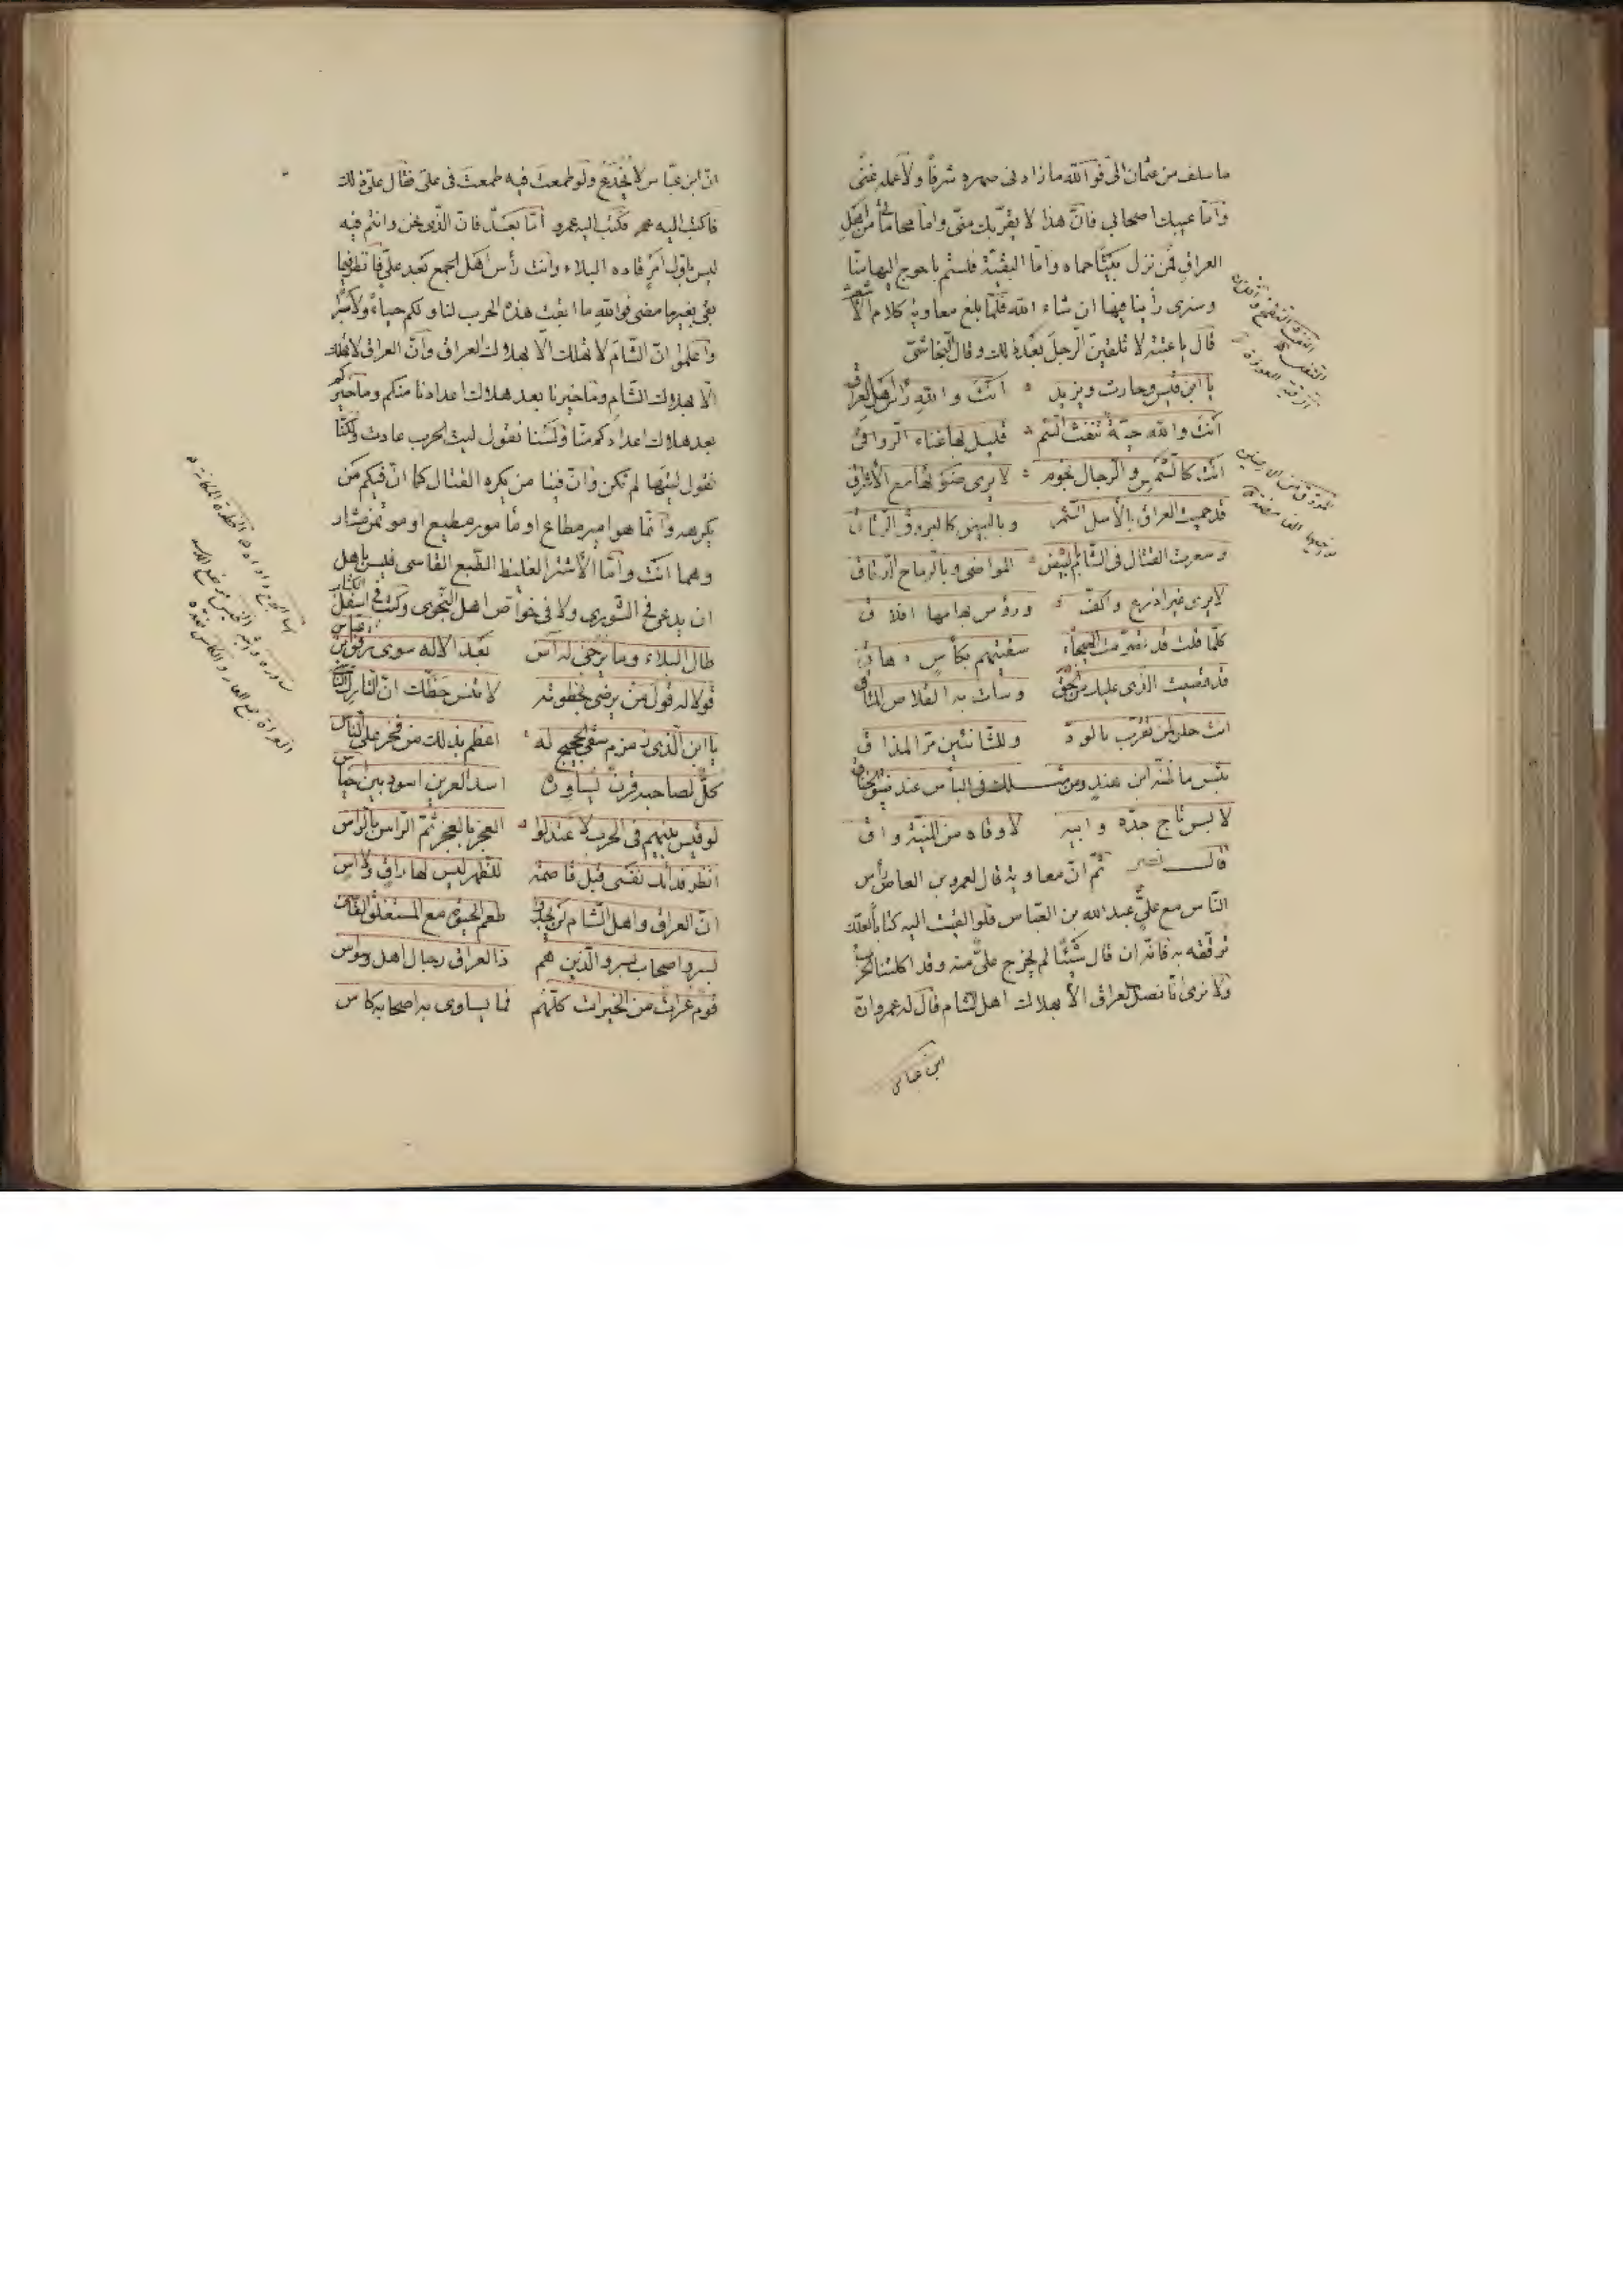 ما سلف من عثمان الىّ فوالله ما زادنى صهره شرفًا ولا عمله غنىً
وامّا عيبك اصحابى فانّ هذا لا يقرّبك منّى وامّا محاماتى من اهل
العراق فمن نزل بيتًا حماه وامّا البقيّة فلستم باحوج اليها منّا
وسنرى رأينا فيها ان شاء الله فلمّا بلغ معاوية كلام الاشعث
قال يا عتبة لا تلقينّ الرجل بعد ذلك وقال النجاشىّ
يا ابن قيس وحارث ويزيد انت والله رأس اهل العراق
انت والله حيّة تنفث السّم قليل لها غناء الرّواقى
انت كالشمس والرجال نجوم لا يرى ضوؤها مع الاشراق
قد حميت العراق بالأسل السّمر وبالبيض كالبروق الرّقاق
وسعرت القتال فى الشام بالبيض المواضى وبالرماح الدّقاق
لا يرى غير اذرع واكفّ ورؤس بهامها افلاق
كلّما قلت قد تصرّمت الهيجاء سقيتهم بكأس دهاق
قد قضيت الذى عليك من الحقّ وسارت به القلاص المناقى
انت حلو لمن تقرّب بالودّ وللشّانئين مرّ المذاق
بئس ما ظنّه ابن هند ومن مثلك فى الباس عند ضيق الخناق
لابس تاج جدّه وابيه لا وقاه من المنيّة واق
قال نصر ثمّ انّ معاوية قال لعمرو بن العاص رأس
النّاس مع علىّ عبد الله بن العبّاس فلو القيت اليه كتابا لعلّك
ترقّقه به فانّه ان قال شيئًا لم يخرج علىّ منه وقد اكلتنا الحرب
ولا نرى انّا نصل العراق الّا بهلاك اهل الشام قال له عمرو انّ
ابن عباس
انّ ابن عبّاس لا يخدع ولو طمعت فيه طمعت فى علىّ فقال علىّ ذلك
فاكتب اليه فكتب اليه عمرو امّا بعد فانّ الذى نحن وانتم فيه
ليس باوّل امر قاده البلاء وانت رأس اهل الجمع بعد علىّ فانظر فيما
بقى بغير ما مضى فوالله ما ابقت هذه الحرب لنا ولكم حياءً ولا صبرًا
واعلموا انّ الشّام لا تهلك الّا بهلاك العراق وانّ العراق لا تهلك
الّا بهلاك الشّام وما خيرنا بعد هلاك اعدادنا منكم وما خيركم
بعد هلاك اعدادكم منّا ولسنا نقول ليت الحرب عادت ولكنّا
نقول ليتها لم تكن وانّ فينا من يكره القتال كما انّ فيكم من
يكرهه وانّما هو امير مطاع او مأمور مطيع او مؤتمن مشاور
وهما انت وامّا الأشتر الغليظ الطّبع القاسى فليس باهل
ان يدعى فى الشّورى ولا فى خواصّ اهل النّجوى وكتب فى اسفل الكتاب
طال البلاء وما يرجى له آس بعد الاله سوى رفق ابن عبّاس
قولا له قول من يرضى بخظوته لا تنس حظّك انّ التارك الناس
يا ابن الّذى زمزم سقى الحجيج له اعظم بذلك من فخر على النّاس
كلّ لصاحبه قرن يساوره اسد العرين اسود بين اخياس
لو قيس بينهم فى الحرب لاعتدلوا العجز بالعجز ثمّ الرّاس بالرّاس
انظر فدا لك نفسى قبل قاصمة للظهر ليس لها راق ولا اس
انّ العراق واهل الشام لن يجدوا طعم الحيوة مع المستغلق القاس
بسر واصحاب بسر والذين هم ذا العراق رجال اهل وسواس
قوم عراة من الخيرات كلّهم فما يساوى به اصحابه كاس